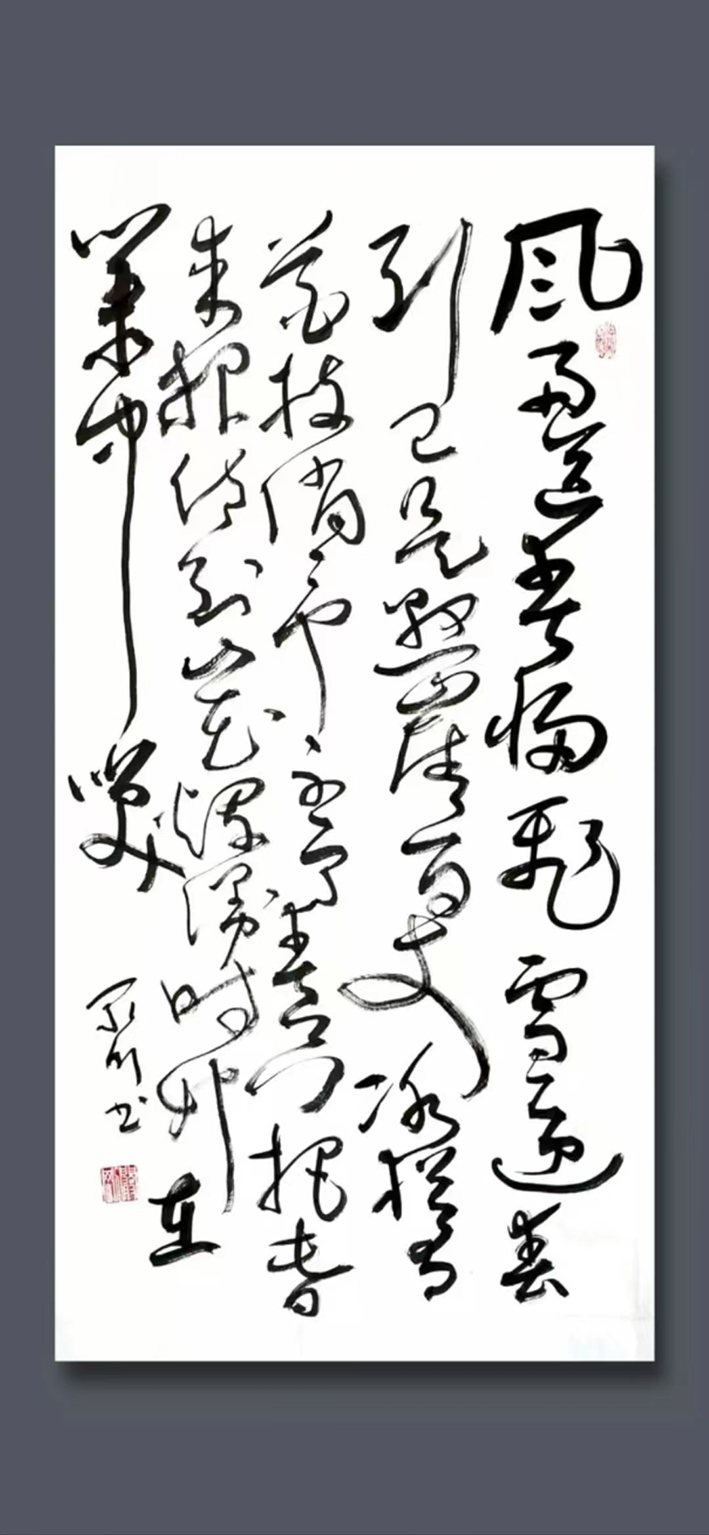 风雨送春归飞雪迎春
到已是悬崖百丈冰犹有
花枝俏俏也不争春只把春
来报待到山花烂漫时她在
丛中笑